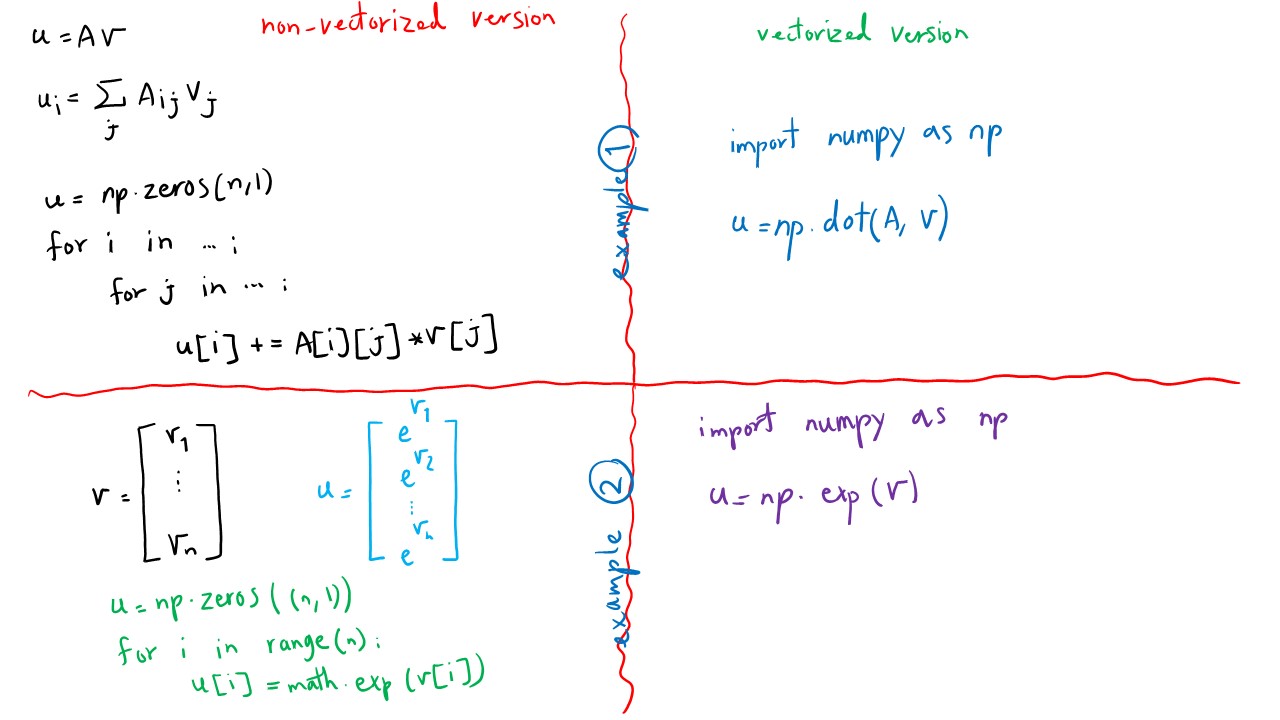 non-vectorized version
u = Av
u_i = ∑_j A_ij v_j
u = np.zeros(n,1)
for i in ... :
for j in ... :
u[i] += A[i][j] * v[j]
example 1
vectorized version
import numpy as np
u = np.dot(A, v)
v = [v_1 ⋮ v_n]
u = [e^v_1 e^v_2 ⋮ e^v_n]
u = np.zeros((n,1))
for i in range(n):
u[i] = math.exp(v[i])
example 2
import numpy as np
u = np.exp(v)